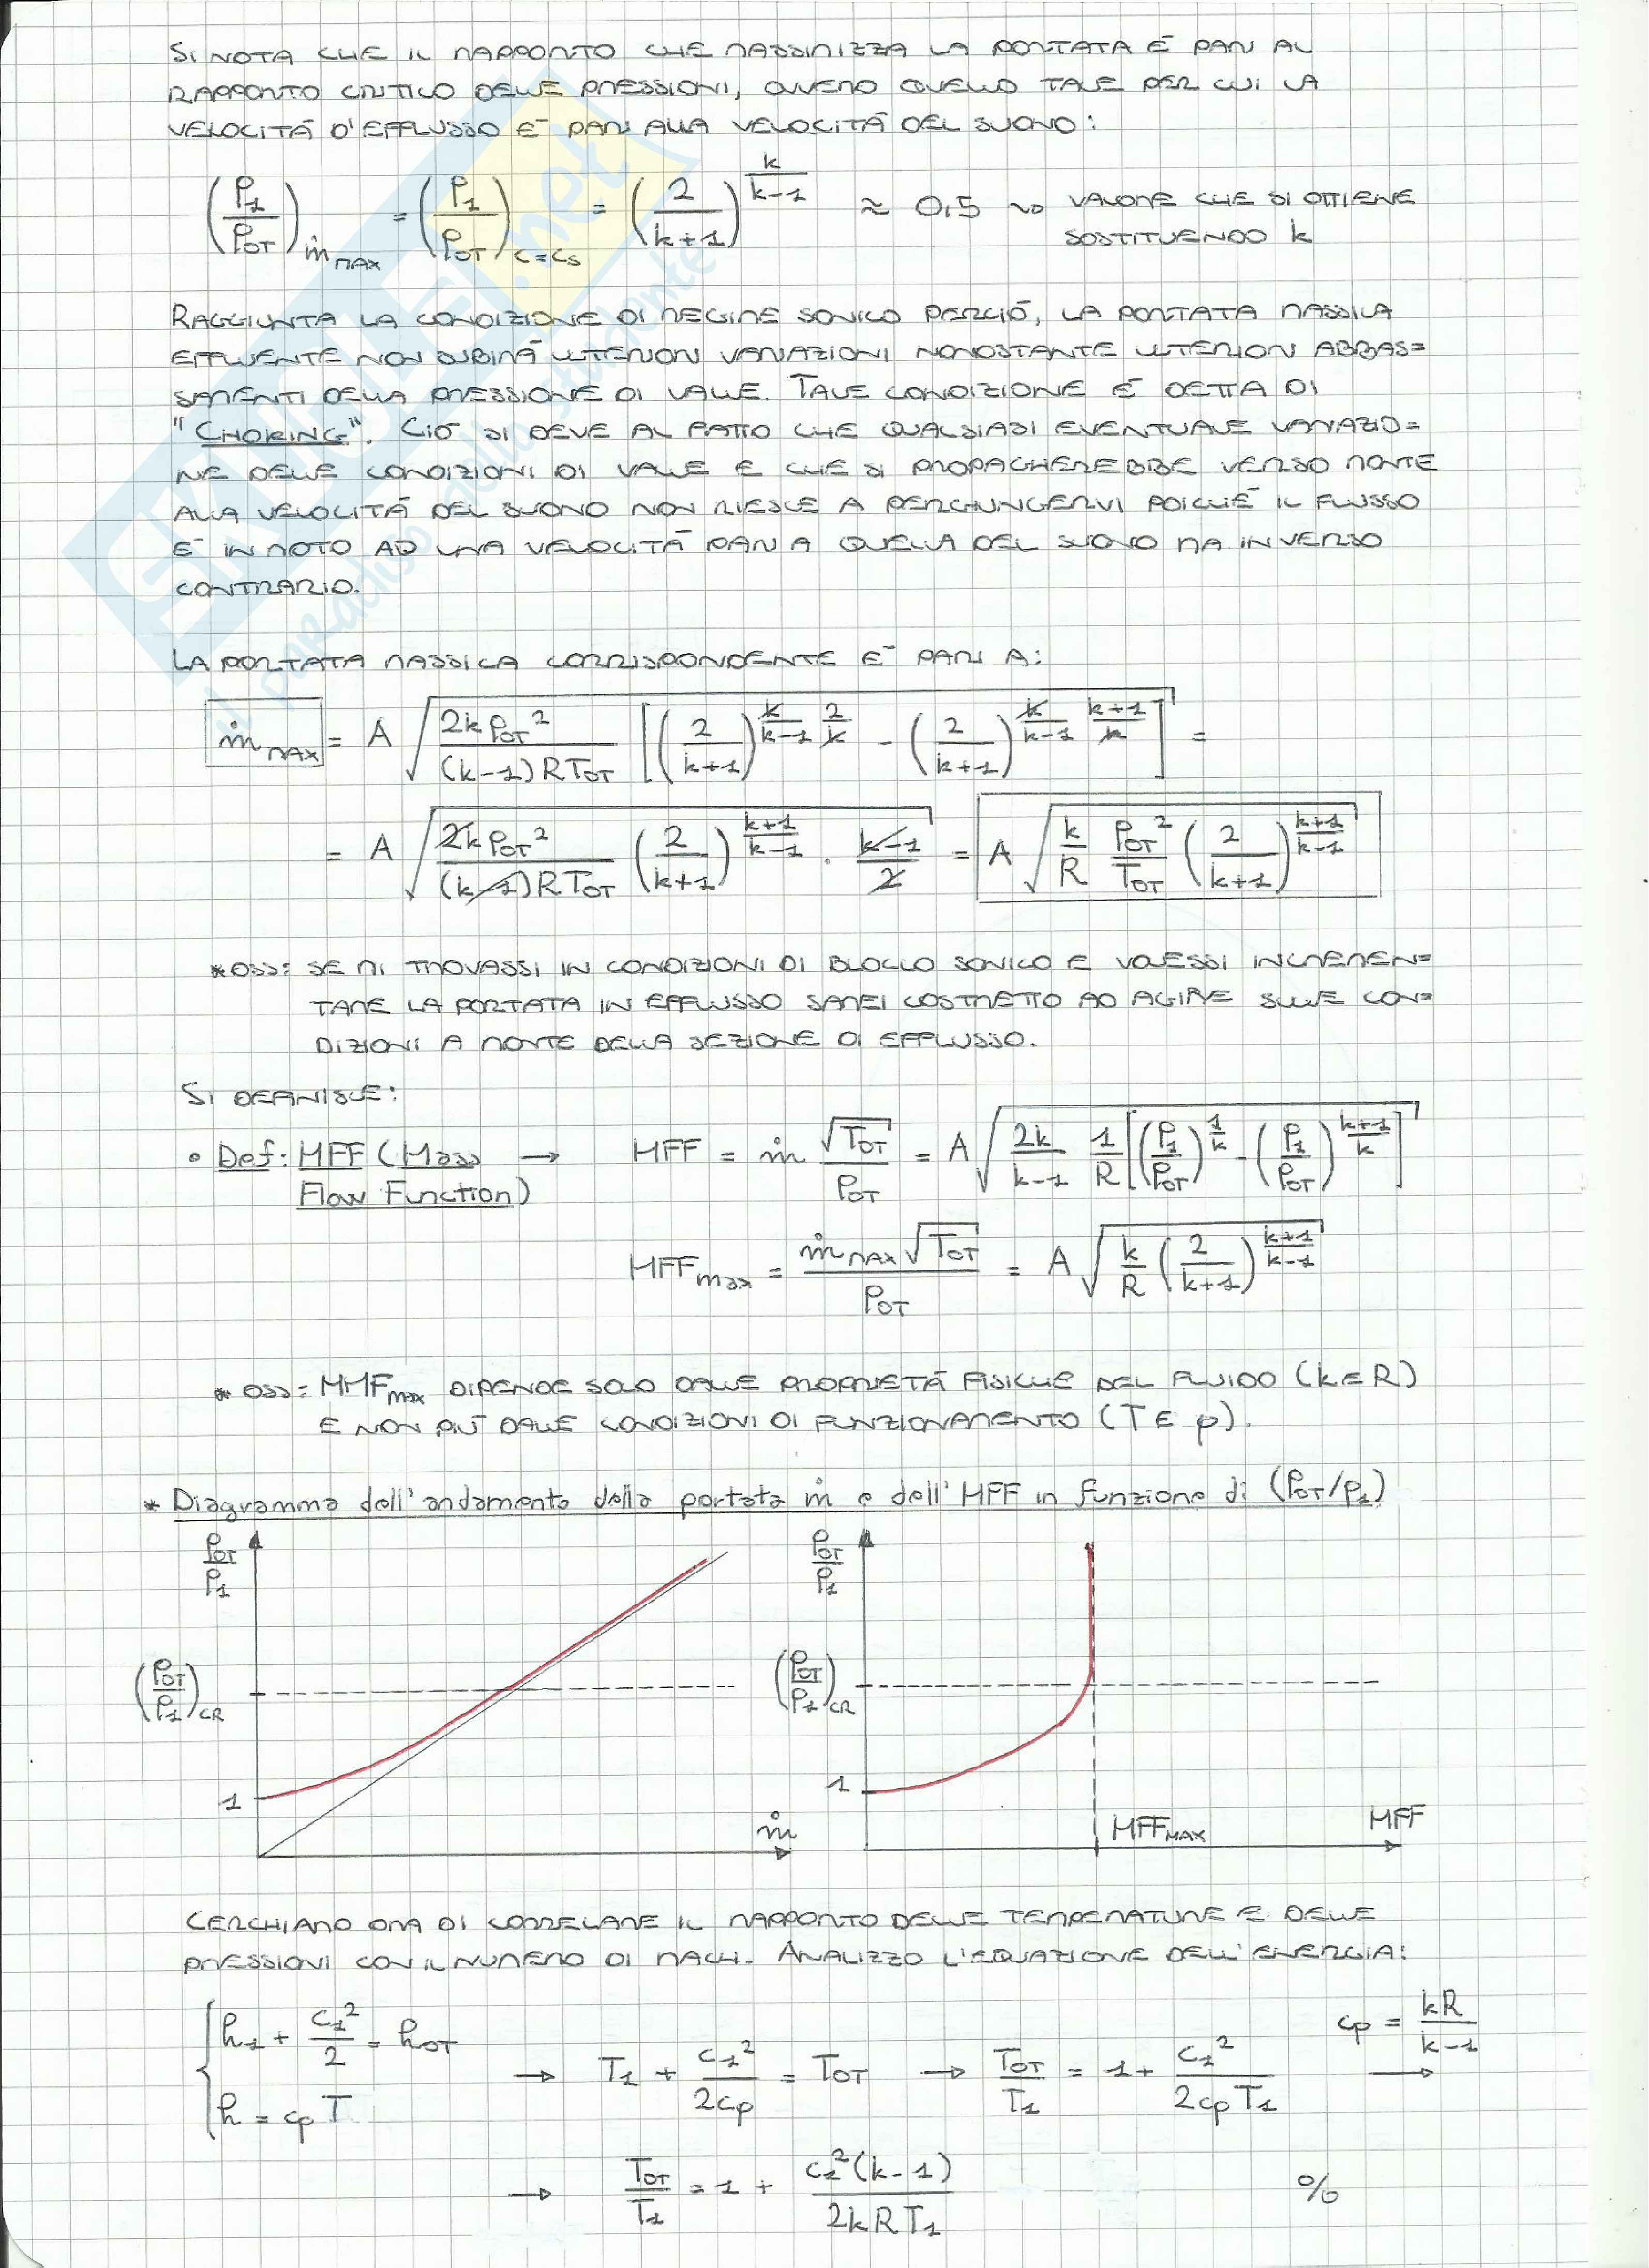 SI NOTA CHE IL RAPPORTO CHE MASSIMIZZA LA PORTATA È PARI AL
RAPPORTO CRITICO DELLE PRESSIONI, OVVERO QUELLO TALE PER CUI LA
VELOCITÀ D'EFFLUSSO È PARI ALLA VELOCITÀ DEL SUONO:
(P1/POT)ṁMAX = (P1/POT)C=CS = (2/(k+1))^(k/(k-1)) ≈ 0,5 ⤳ VALORE CHE SI OTTIENE
SOSTITUENDO k
RAGGIUNTA LA CONDIZIONE DI REGIME SONICO PERCIÒ, LA PORTATA MASSICA
EFFLUENTE NON SUBIRÀ ULTERIORI VARIAZIONI NONOSTANTE ULTERIORI ABBAS=
SAMENTI DELLA PRESSIONE DI VALLE. TALE CONDIZIONE È DETTA DI
"CHOKING". CIÒ SI DEVE AL FATTO CHE QUALSIASI EVENTUALE VARIAZIO=
NE DELLE CONDIZIONI DI VALLE E CHE SI PROPAGHEREBBE VERSO MONTE
ALLA VELOCITÀ DEL SUONO NON RIESCE A PERGIUNGERVI POICHÉ IL FLUSSO
È IN MOTO AD UNA VELOCITÀ PARI A QUELLA DEL SUONO MA IN VERSO
CONTRARIO.
LA PORTATA MASSICA CORRISPONDENTE È PARI A:
ṁMAX = A √(2k POT²/((k-1)R TOT) [(2/(k+1))^(k/(k-1) · 2/k) - (2/(k+1))^(k/(k-1) · (k+1)/k)]) =
= A √(2k POT²/((k-1)R TOT) (2/(k+1))^((k+1)/(k-1)) · (k-1)/2) = A √(k/R POT²/TOT (2/(k+1))^((k+1)/(k-1)))
*OSS: SE MI TROVASSI IN CONDIZIONI DI BLOCCO SONICO E VOLESSI INCREMEN=
TARE LA PORTATA IN EFFLUSSO SAREI COSTRETTO AD AGIRE SULLE CON=
DIZIONI A MONTE DELLA SEZIONE DI EFFLUSSO.
SI DEFINISCE:
• Def: MFF (Mass → MFF = ṁ √TOT/POT = A √(2k/(k-1) 1/R [(P1/POT)^(1/k) - (P1/POT)^((k+1)/k)])
Flow Function)
MFFmax = ṁMAX √TOT/POT = A √(k/R (2/(k+1))^((k+1)/(k-1)))
* OSS: MMFmax DIPENDE SOLO DALLE PROPRIETÀ FISICHE DEL FLUIDO (k E R)
E NON PIÙ DALLE CONDIZIONI DI FUNZIONAMENTO (T E p).
* Diagramma dell'andamento della portata ṁ e dell'MFF in funzione di (POT/P1)
POT/P1 POT/P1
(POT/P1)CR (POT/P1)CR
1 1
ṁ MFFMAX MFF
CERCHIAMO ORA DI CORRELARE IL RAPPORTO DELLE TEMPERATURE E DELLE
PRESSIONI CON IL NUMERO DI MACH. ANALIZZO L'EQUAZIONE DELL'ENERGIA:
{h1 + c1²/2 = hOT
h = cp T → T1 + c1²/2cp = TOT → TOT/T1 = 1 + c1²/2cpT1 cp = kR/(k-1) →
→ TOT/T1 = 1 + c1²(k-1)/2kRT1 %
SKUOLA.net
il paradiso dello studente